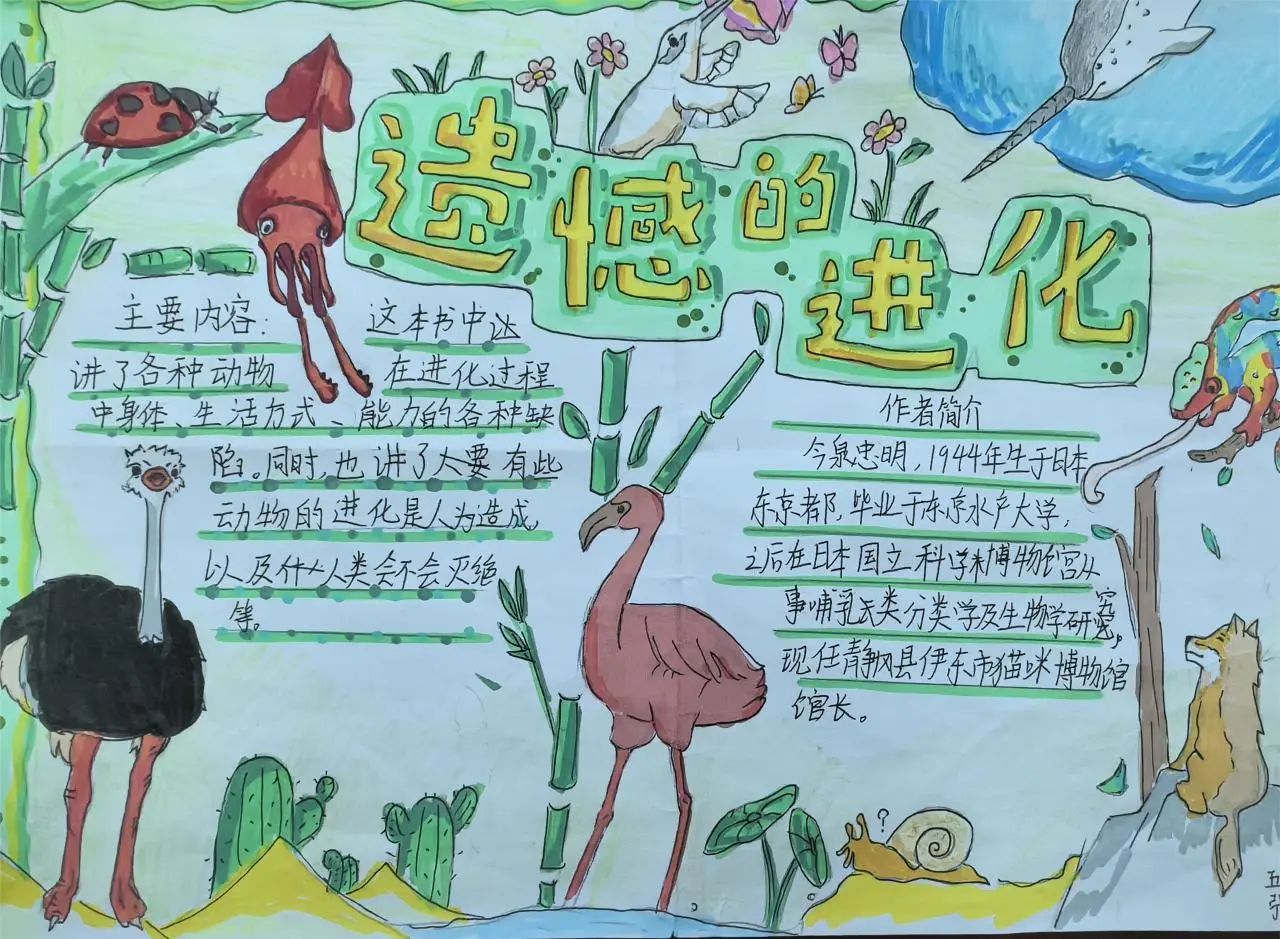 遗憾的进化
主要内容: 这本书中达
讲了各种动物 在进化过程
中身体、生活方式、能力的各种缺
陷。同时,也讲了大要有些
动物的进化是人为造成,
以及什么人类会不会灭绝
等。
作者简介
今泉忠明,1944年生于日本
东京都,毕业于东京水产大学,
之后在日本国立科学博物馆宫从
事哺乳类分类学及生物学研究,
现任静枫县伊东市猫咪博物馆
馆长。
?
五
张